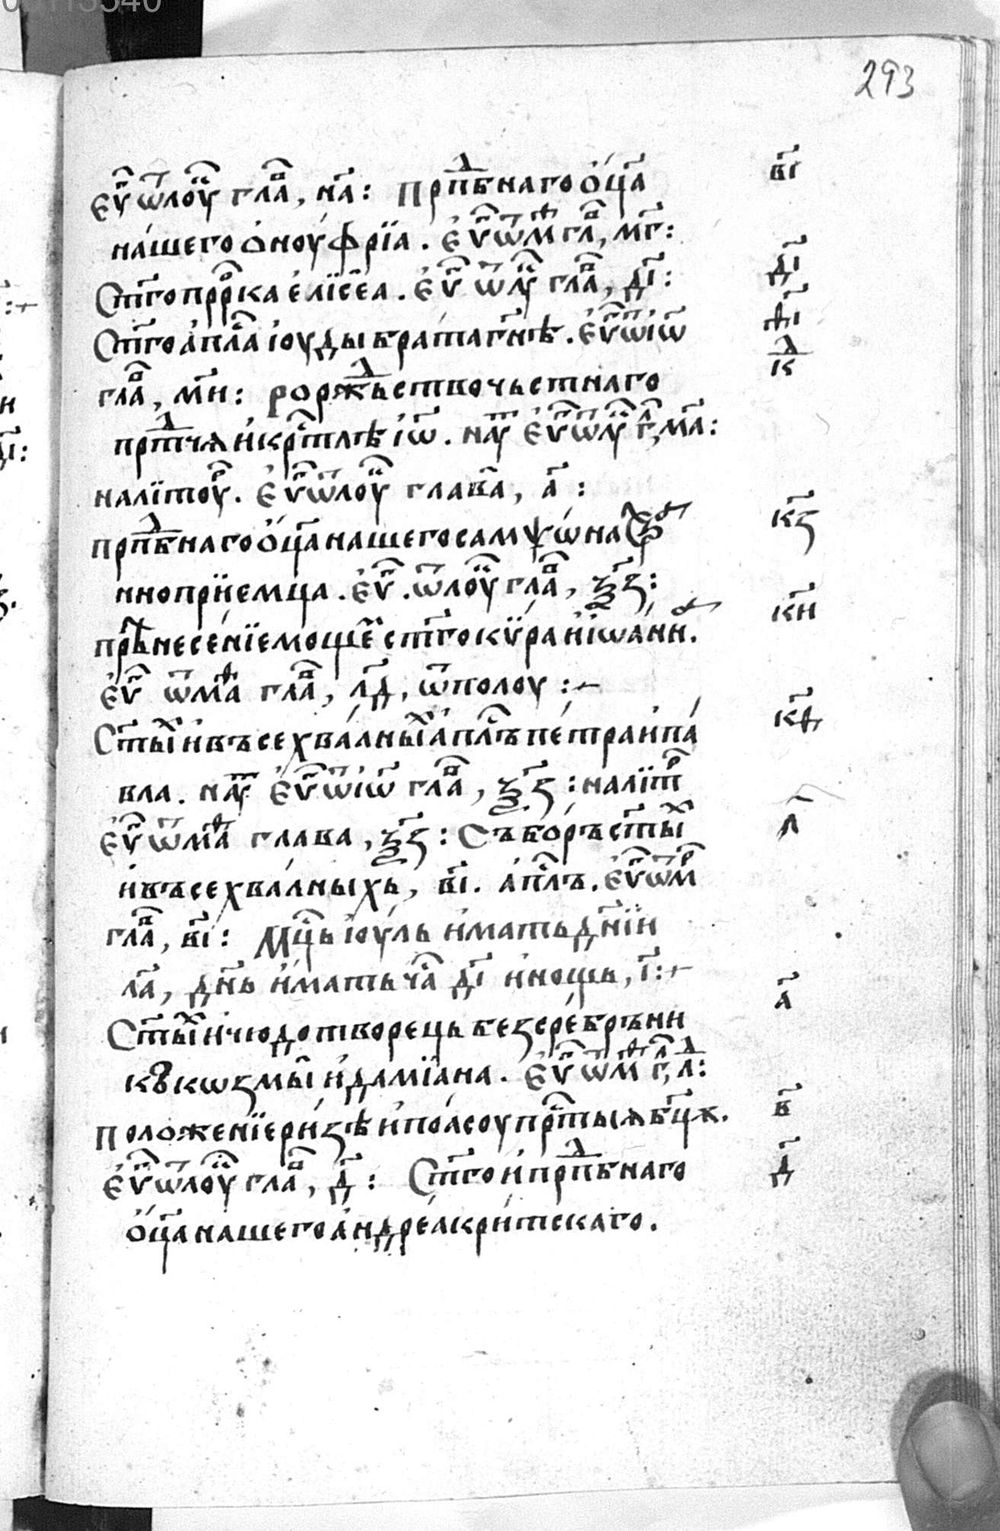 293
еѵⷢ҇ ѿлоуⷦ҇ глаⷡ҇, н҃а: прпⷣбнаго ѻц҃а в҃і
нашего ѻноуфрїа. еѵⷢ҇ ѿмⷴ҇ гл҃, м҃г:
ст҃го прⷪ҇рка елїсеа. еѵⷢ҇ ѿ лꙋⷦ҇ глаⷡ҇, д҃і: д҃і
ст҃го ап҃ла іоуды брата гн҃ѣ. еѵⷢ҇ ѿ іѡ҃ ѳ҃і
глаⷡ҇, м҃и: рорⷤьство чьстнаго к҃д
прⷣтчѧ и кр҃тлѣ іѡ҃. наꙋⷮ еѵⷢ҇ ѿ лꙋⷦ҇ г҃, м҃а:
на лїтоуⷬ҇. еѵⷢ҇ ѿ лоуⷦ҇ глава, а҃:
прпⷣбнаго ѻц҃а нашего самѱѡна стра к҃з
ннопрїемца. еѵⷢ҇. ѿ лоуⷦ҇ глаⷡ҇, ѯ҃з:
прѣнесенїе мощеⷨ ст҃го кѵра и іѡанн. к҃и
еѵⷢ҇ ѿ маⷴ҇ глаⷡ҇, л҃д, ѿ полоу:~
ст҃ыⷯ и въсехвалныⷯ ап҃лъ петра и па к҃ѳ
вла. наꙋⷮ еѵⷢ҇ ѿ іѡ҃ глаⷡ҇, ѯ҃з: на лїтⷬ҇
еѵⷢ҇ ѿ маⷴ҇ глава, ѯ҃з: съборъ ст҃ыⷯ л҃
и въсехвалныхь, в҃і. ап҃лъ. еѵⷢ҇ ѿ мⷬ҇
глаⷡ҇, в҃і: мц҃ь іоуль имать дн҃їи
л҃а, дн҃ь имать ча҃ д҃і и нощь, і҃:~
ст҃ыⷯ и чюдотворець безсребръни а҃
кꙋ козмы и дамїана. еѵⷢ҇ ѿ мⷴ҇ г҃, л҃:
положенїе ризѣ и поасоу пр҃тыѧ бц҃ѫ. в҃
еѵⷢ҇ ѿ лоуⷦ҇ глаⷡ҇, д҃: ст҃го и прпⷣбнаго д҃
ѻц҃а нашего андреа критскаго.